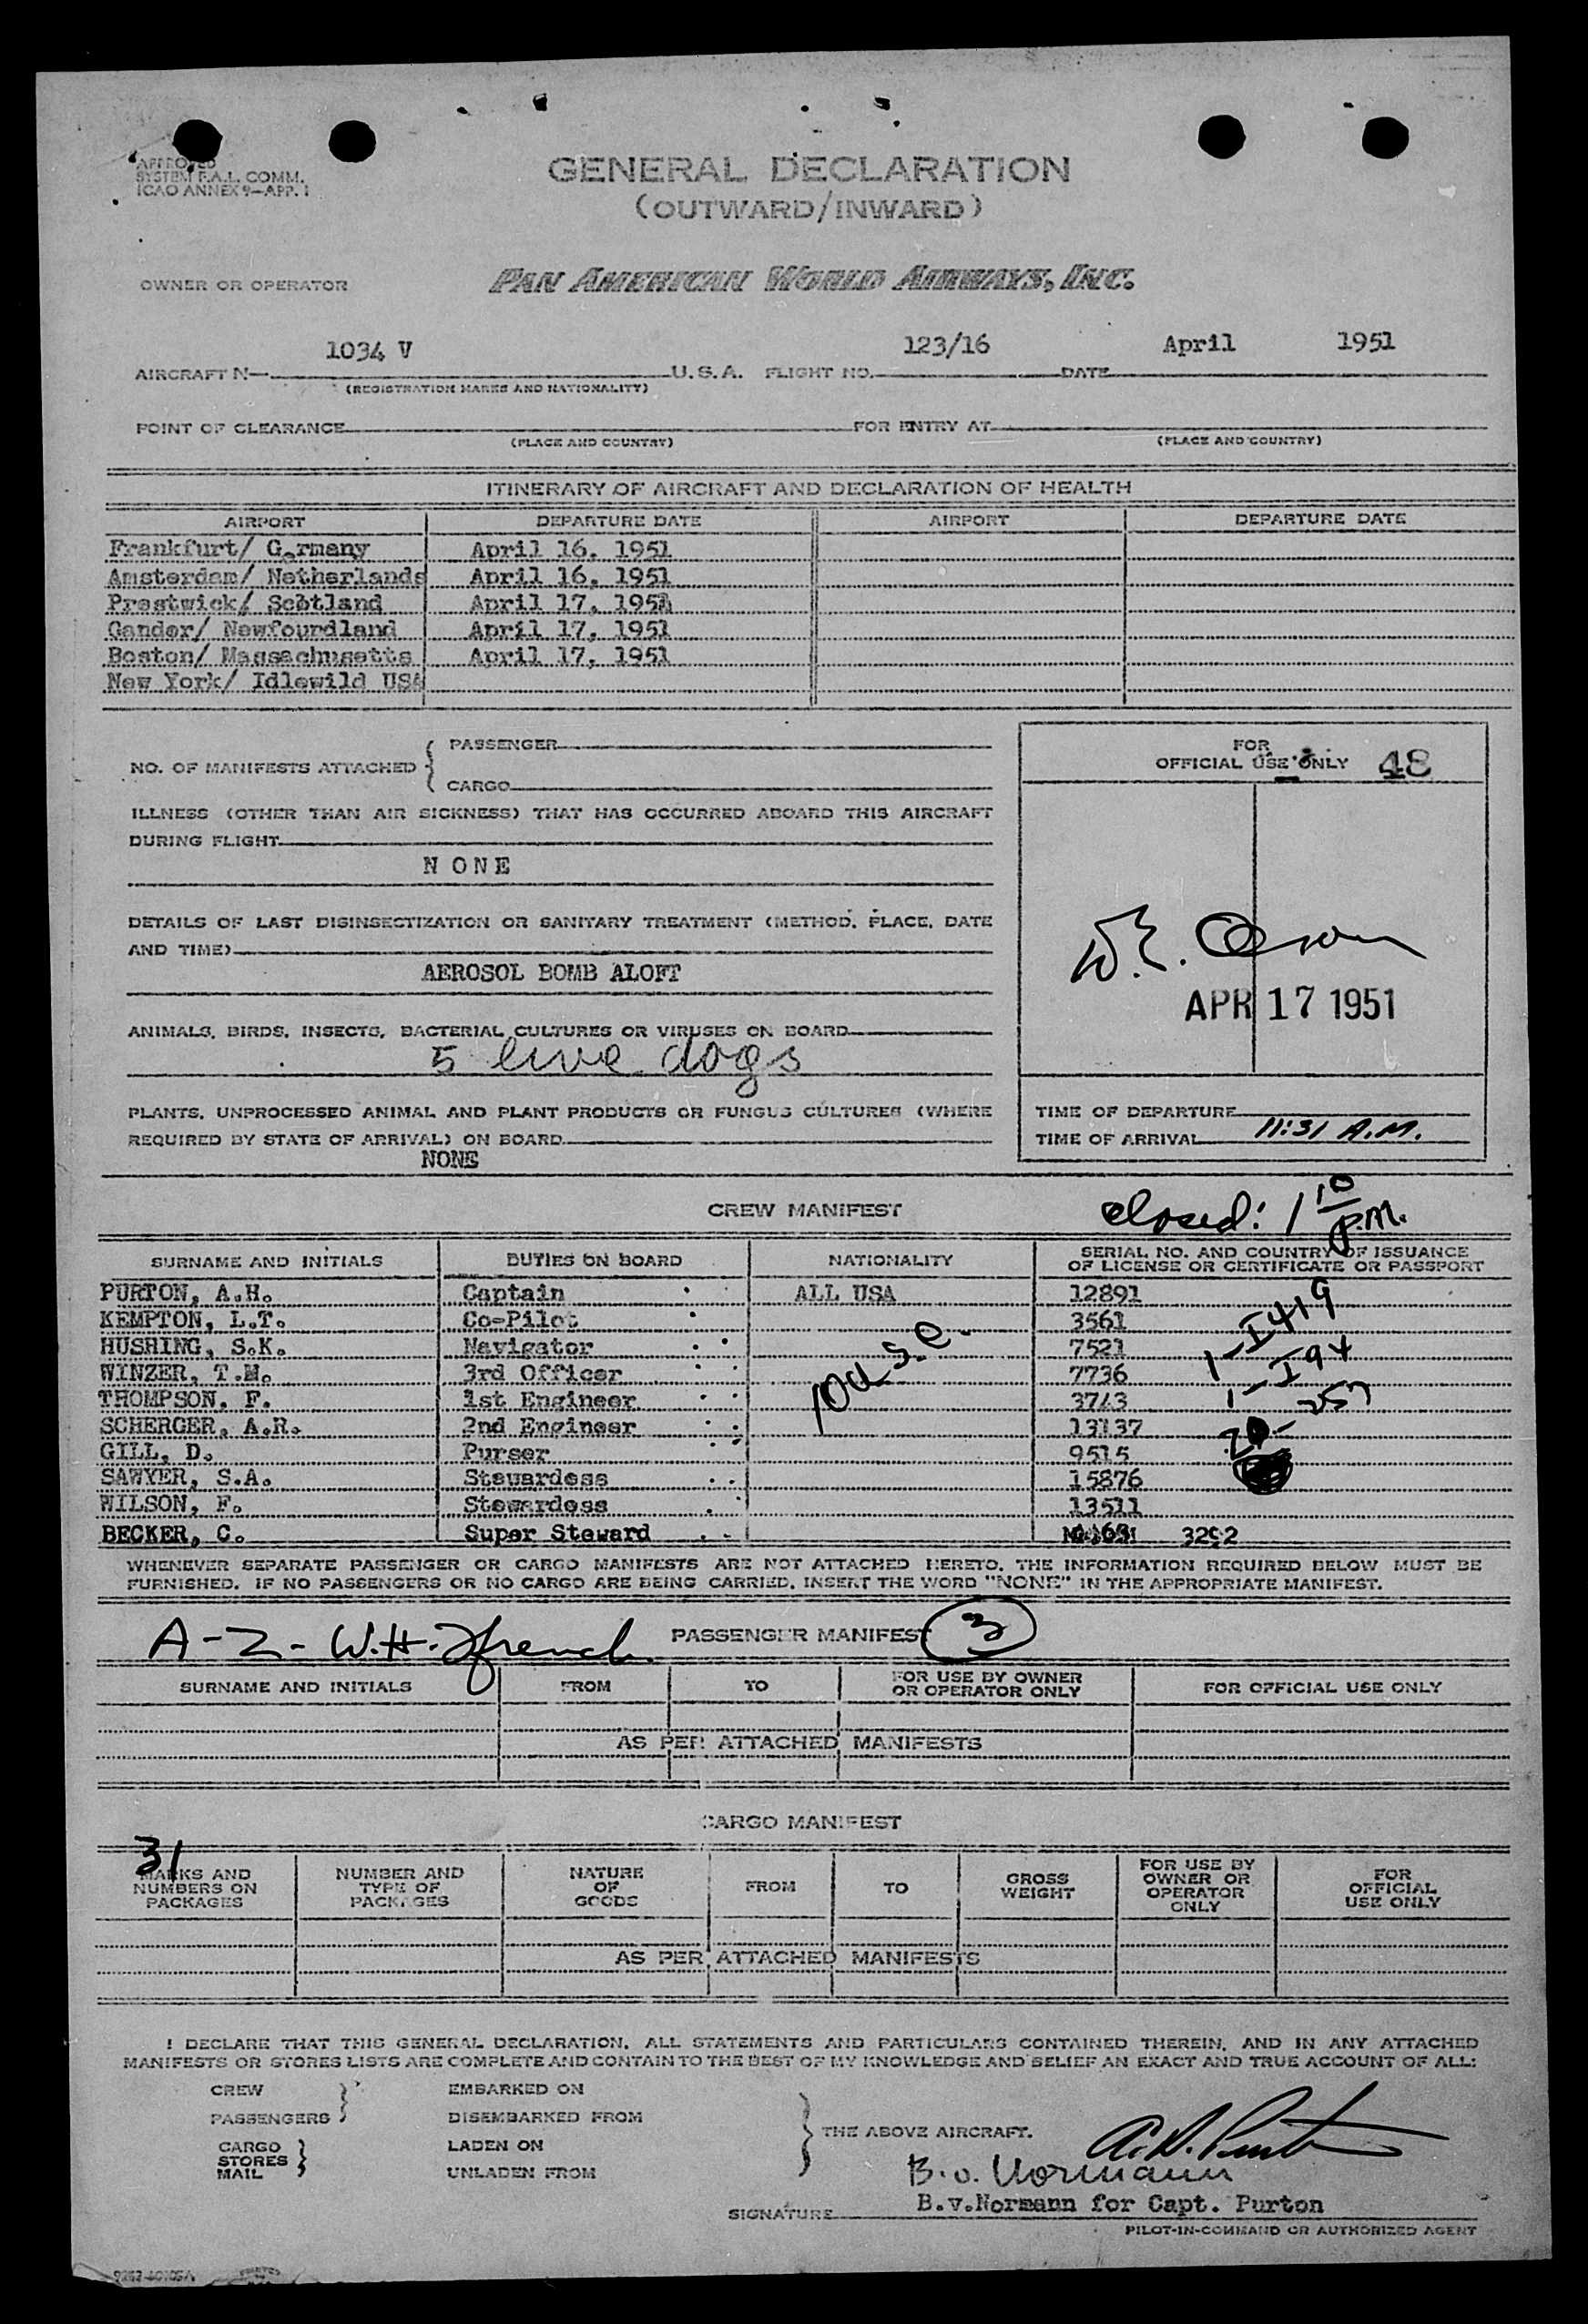 APPROVED
SYSTEM F.A.L. COMM.
ICAO ANNEX 9—APP. 1
GENERAL DECLARATION
(OUTWARD/INWARD)
OWNER OR OPERATOR PAN AMERICAN WORLD AIRWAYS, INC.
1034 V 123/16 April 1951
AIRCRAFT N— U.S.A. FLIGHT NO. DATE
(REGISTRATION MARKS AND NATIONALITY)
POINT OF CLEARANCE FOR ENTRY AT
(PLACE AND COUNTRY) (PLACE AND COUNTRY)
ITINERARY OF AIRCRAFT AND DECLARATION OF HEALTH
AIRPORT DEPARTURE DATE AIRPORT DEPARTURE DATE
Frankfurt/ Germany April 16. 1951
Amsterdam/ Netherlands April 16. 1951
Prestwick/ Scotland April 17. 1951
Gander/ Newfourdland April 17, 1951
Boston/ Massachusetts April 17, 1951
New York/ Idlewild USA
NO. OF MANIFESTS ATTACHED PASSENGER
CARGO
FOR
OFFICIAL USE ONLY 48
ILLNESS (OTHER THAN AIR SICKNESS) THAT HAS OCCURRED ABOARD THIS AIRCRAFT
DURING FLIGHT
N ONE
DETAILS OF LAST DISINSECTIZATION OR SANITARY TREATMENT (METHOD, PLACE, DATE
AND TIME)
AEROSOL BOMB ALOFT
APR 17 1951
ANIMALS, BIRDS, INSECTS, BACTERIAL CULTURES OR VIRUSES ON BOARD
5 live dogs
PLANTS, UNPROCESSED ANIMAL AND PLANT PRODUCTS OR FUNGUS CULTURES (WHERE
REQUIRED BY STATE OF ARRIVAL) ON BOARD
NONE
TIME OF DEPARTURE
TIME OF ARRIVAL 11:31 A.M.
CREW MANIFEST closed: 1 10 P.M.
SURNAME AND INITIALS DUTIES ON BOARD NATIONALITY SERIAL NO. AND COUNTRY OF ISSUANCE
OF LICENSE OR CERTIFICATE OR PASSPORT
PURTON, A.H. Captain ALL USA 12891
KEMPTON, L.T. Co-Pilot 3561
HUSHING, S.K. Navigator 7521
WINZER, T.M. 3rd Officer 7736
THOMPSON, F. 1st Engineer 3743
SCHERGER, A.R. 2nd Engineer 13137
GILL, D. Purser 9515
SAWYER, S.A. Stewardess 15876
WILSON, F. Stewardess 13511
BECKER, C. Super Steward 3292
10 U.S.C.
1-I419
1-I94
20-257
WHENEVER SEPARATE PASSENGER OR CARGO MANIFESTS ARE NOT ATTACHED HERETO, THE INFORMATION REQUIRED BELOW MUST BE
FURNISHED. IF NO PASSENGERS OR NO CARGO ARE BEING CARRIED, INSERT THE WORD "NONE" IN THE APPROPRIATE MANIFEST.
A-Z- W.H. French PASSENGER MANIFEST 3
SURNAME AND INITIALS FROM TO FOR USE BY OWNER
OR OPERATOR ONLY FOR OFFICIAL USE ONLY
AS PER ATTACHED MANIFESTS
CARGO MANIFEST
31
MARKS AND
NUMBERS ON
PACKAGES NUMBER AND
TYPE OF
PACKAGES NATURE
OF
GOODS FROM TO GROSS
WEIGHT FOR USE BY
OWNER OR
OPERATOR
ONLY FOR
OFFICIAL
USE ONLY
AS PER ATTACHED MANIFESTS
I DECLARE THAT THIS GENERAL DECLARATION, ALL STATEMENTS AND PARTICULARS CONTAINED THEREIN, AND IN ANY ATTACHED
MANIFESTS OR STORES LISTS ARE COMPLETE AND CONTAIN TO THE BEST OF MY KNOWLEDGE AND BELIEF AN EXACT AND TRUE ACCOUNT OF ALL:
CREW EMBARKED ON
PASSENGERS DISEMBARKED FROM
THE ABOVE AIRCRAFT.
CARGO LADEN ON
STORES
MAIL UNLADEN FROM
A.H. Purton
B.v. Normann
SIGNATURE B.v.Normann for Capt. Purton
PILOT-IN-COMMAND OR AUTHORIZED AGENT